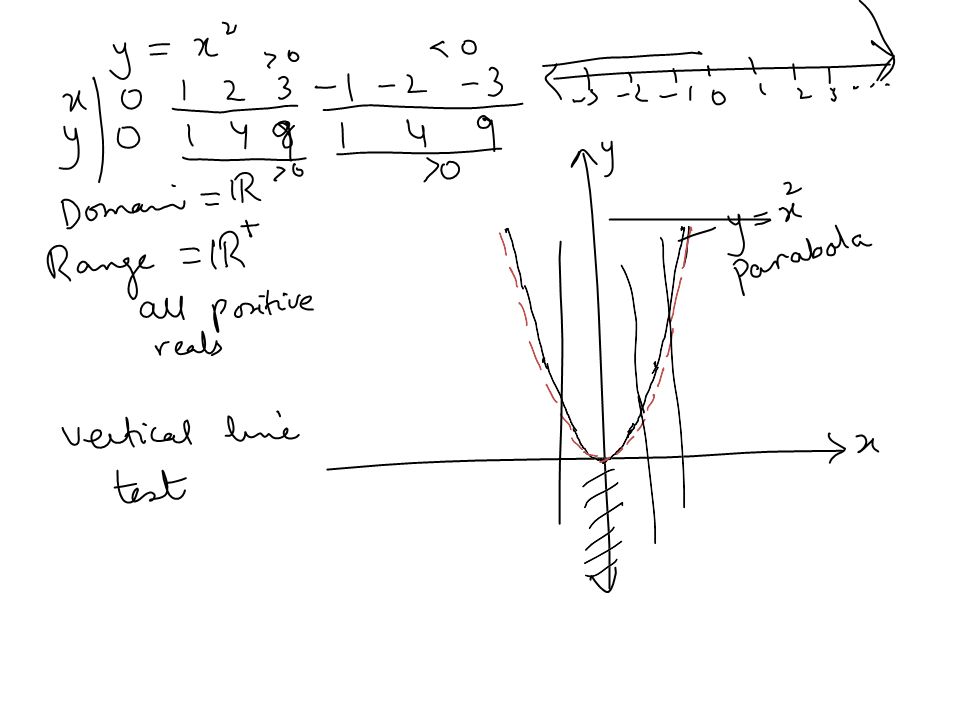 y = x²
>0 <0
x | 0 1 2 3 -1 -2 -3
y | 0 1 4 9 1 4 9
>0 >0
Domain = ℝ
Range = ℝ⁺
all positive
reals
vertical line
test
-3 -2 -1 0 1 2 3 ....
y
y = x²
Parabola
x